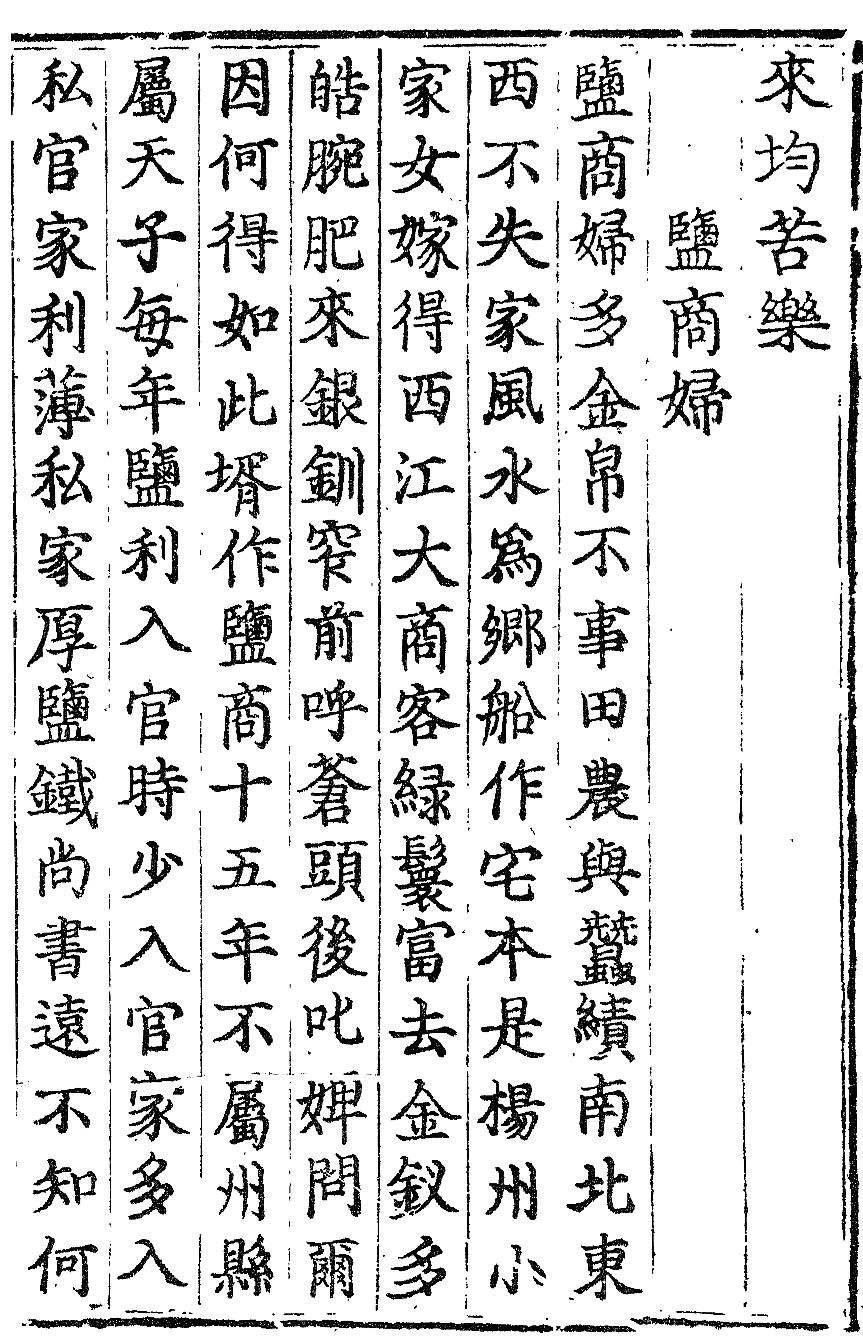 來均苦樂
鹽商婦
鹽商婦多金帛不事田農與蠶績南北東
西不失家風水爲鄉船作宅本是楊州小
家女嫁得西江大商客綠鬟富去金釵多
皓腕肥來銀釧窄前呼蒼頭後叱婢問爾
因何得如此壻作鹽商十五年不屬州縣
屬天子每年鹽利入官時少入官家多入
私官家利薄私家厚鹽鐵尚書遠不知何